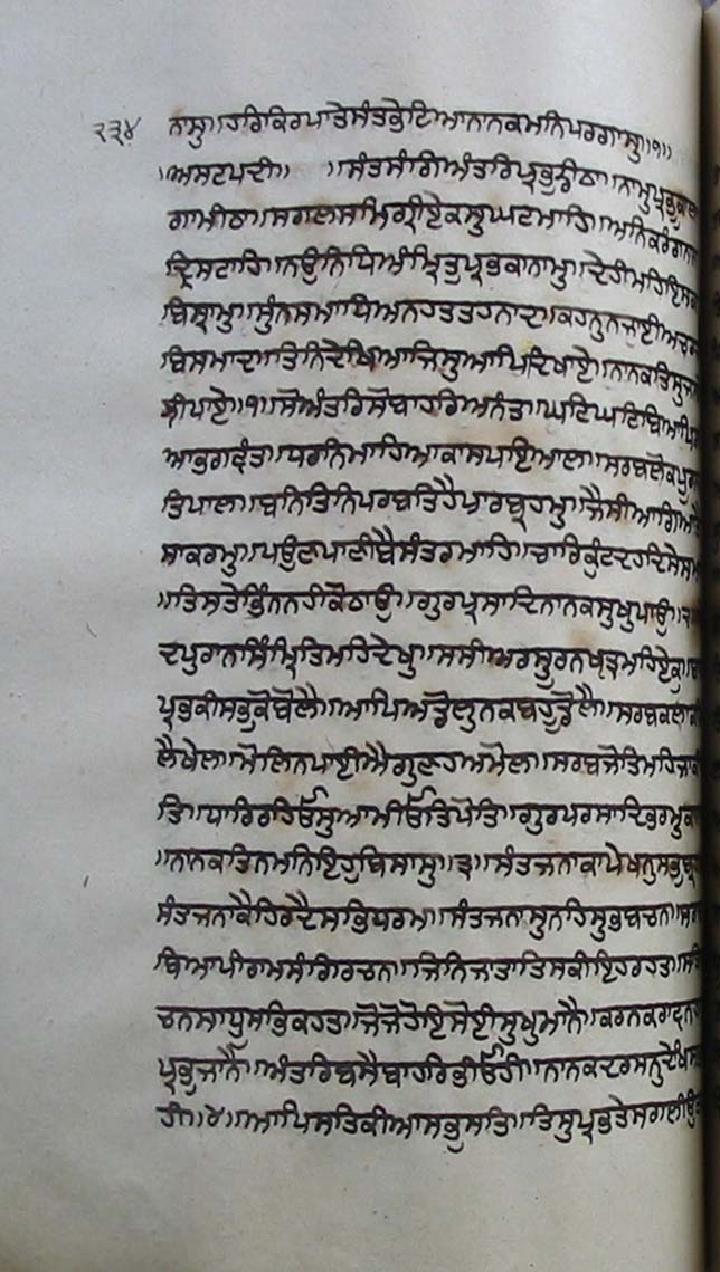 ੨੩੪ ਨਾਸੁ॥ਹਰਿਕਿਰਪਾਤੇਸੰਤਭੇਟਿਆਨਾਨਕਮਨਿਪਰਗਾਸੁ॥੧॥
॥ਅਸਟਪਦੀ॥ ॥ਸੰਤਸੰਗਿਅੰਤਰਿਪ੍ਰਭੁਡੀਠਾ॥ਨਾਮੁਪ੍ਰਭੂਕਾਲਾ
ਗਾਮੀਠਾ॥ਸਗਲਸਮਿਗ੍ਰੀਏਕਸੁਘਟਮਾਹਿ॥ਅਨਿਕਰੰਗਨਾਨਾ
ਦ੍ਰਿਸਟਾਹਿ॥ਨਉਨਿਧਿਅੰਮ੍ਰਿਤੁਪ੍ਰਭਕਾਨਾਮੁ॥ਦੇਹੀਮਹਿਇਸਕਾ
ਬਿਸ੍ਰਾਮੁ॥ਸੁੰਨਸਮਾਧਿਅਨਹਤਤਹਨਾਦ॥ਕਹਨੁਨਜਾਈਅਚਰਜ
ਬਿਸਮਾਦ॥ਤਿਨਿਦੇਖਿਆਜਿਸੁਆਪਿਦਿਖਾਏ॥ਨਾਨਕਤਿਸੁਜਨ
ਸੋਝੀਪਾਏ॥੧॥ਸੋਅੰਤਰਿਸੋਬਾਹਰਿਅਨੰਤ॥ਘਟਿਘਟਿਬਿਆਪਿ
ਆਭਗਵੰਤ॥ਧਰਨਿਮਾਹਿਆਕਾਸਪਇਆਲ॥ਸਰਬਲੋਕਪੂਰਨ
ਤਿਪਾਲ॥ਬਨਿਤਿਨਿਪਰਬਤਿਹੈਪਾਰਬ੍ਰਹਮੁ॥ਜੈਸੀਆਗਿਆਤੈ
ਸਾਕਰਮੁ॥ਪਉਣਪਾਣੀਬੈਸੰਤਰਮਾਹਿ॥ਚਾਰਿਕੁੰਟਦਹਦਿਸੇਸਮਾ
॥ਤਿਸਤੇਭਿੰਨਨਹੀਕੋਠਾਉ॥ਗੁਰਪ੍ਰਸਾਦਿਨਾਨਕਸੁਖੁਪਾਉ॥੨॥
ਦਪੁਰਾਨਸਿੰਮ੍ਰਿਤਿਮਹਿਦੇਖੁ॥ਸਸੀਅਰਸੂਰਨਖ੍ਯਤ੍ਰਮਹਿਏਕੁ॥
ਪ੍ਰਭਕੀਸਭੁਕੋਬੋਲੈ॥ਆਪਿਅਡੋਲੁਨਕਬਹੂਡੋਲੈ॥ਸਰਬਕਲਾਕਰਿ
ਲੈਖੇਲ॥ਮੋਲਿਨਪਾਈਐਗੁਣਹਅਮੋਲ॥ਸਰਬਜੋਤਿਮਹਿਜਾਕੀ
ਤਿ॥ਧਾਰਿਰਹਿਓਸੁਆਮੀਓਤਿਪੋਤਿ॥ਗੁਰਪਰਸਾਦਿਭਰਮੁਕਾ
॥ਨਾਨਕਤਿਨਮਨਿਇਹੁਬਿਸਾਸੁ॥੩॥ਸੰਤਜਨਾਕਾਪੇਖਨੁਸਭੁਬ੍ਰਹਮ
ਸੰਤਜਨਾਕੈਹਿਰਦੈਸਭਿਧਰਮ॥ਸੰਤਜਨਾਸੁਨਹਿਸੁਭਬਚਨ॥ਸਰਬ
ਬਿਆਪੀਰਾਮਸੰਗਿਰਚਨ॥ਜਿਨਿਜਾਤਾਤਿਸਕੀਇਹਰਹਤ॥ਸਤਿ
ਚਨਸਾਧੂਸਭਿਕਹਤ॥ਜੋਜੋਹੋਇਸੋਈਸੁਖੁਮਾਨੈ॥ਕਰਨਕਰਾਵਨ
ਪ੍ਰਭੁਜਾਨੈ॥ਅੰਤਰਿਬਸੈਬਾਹਰਿਭੀਓਹੀ॥ਨਾਨਕਦਰਸਨੁਦੇਖਿਸਭ
ਹੀ॥੪॥ਆਪਿਸਤਿਕੀਆਸਭੁਸਤਿ॥ਤਿਸੁਪ੍ਰਭਤੇਸਗਲੀਉਤ